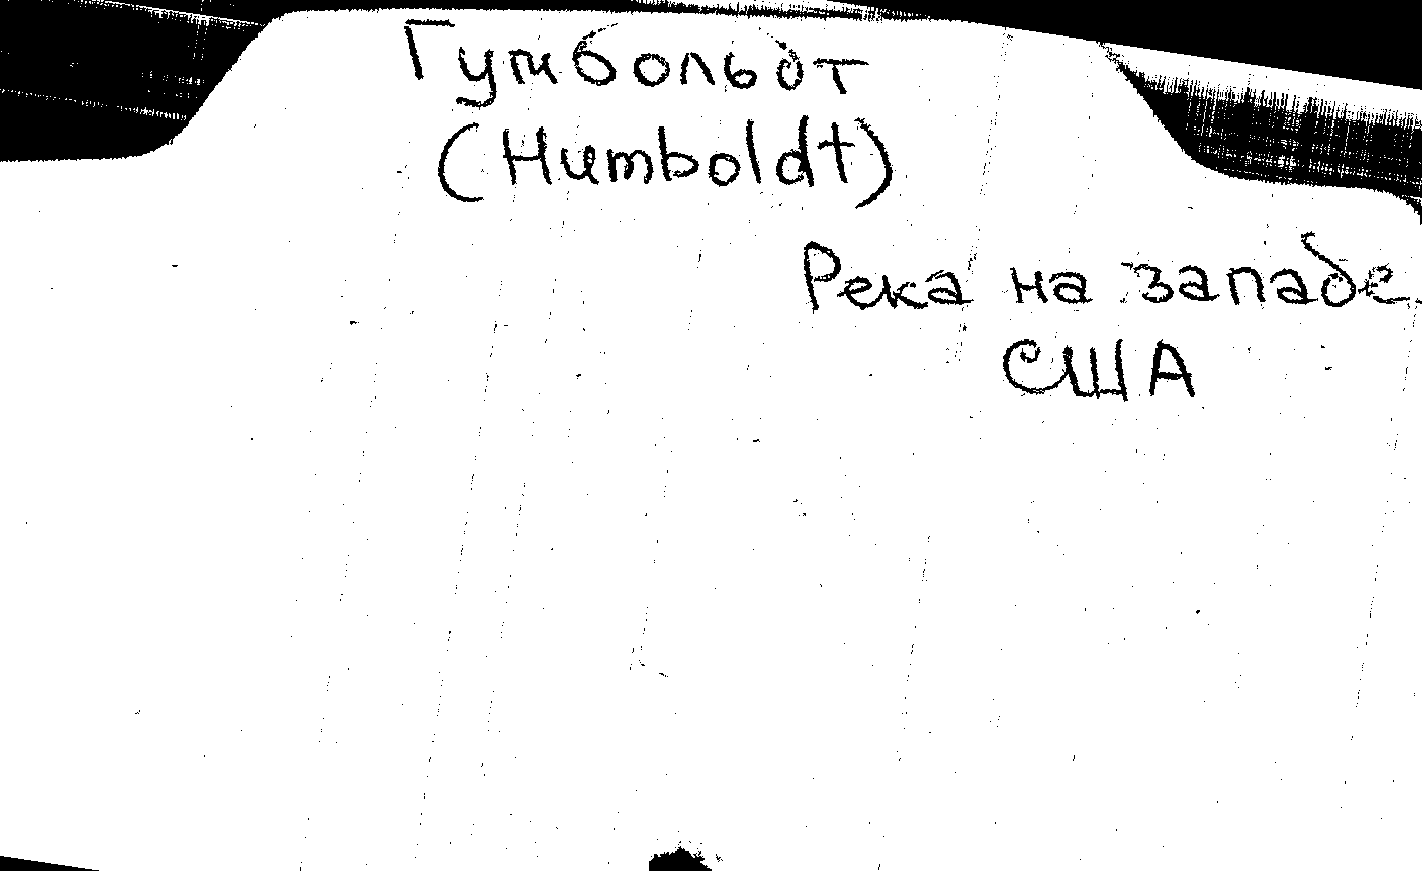 Гумбольдт
(Humboldt)
Река на западе
США